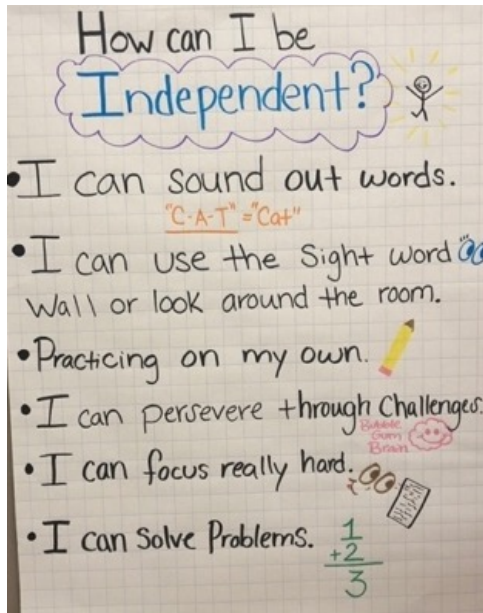 How can I be
Independent?
• I can sound out words.
"C-A-T" = "Cat"
• I can use the Sight word
Wall or look around the room.
• Practicing on my own.
• I can persevere through Challenges.
Bubble
Gum
Brain
• I can focus really hard.
• I can Solve Problems.
1
+2
3